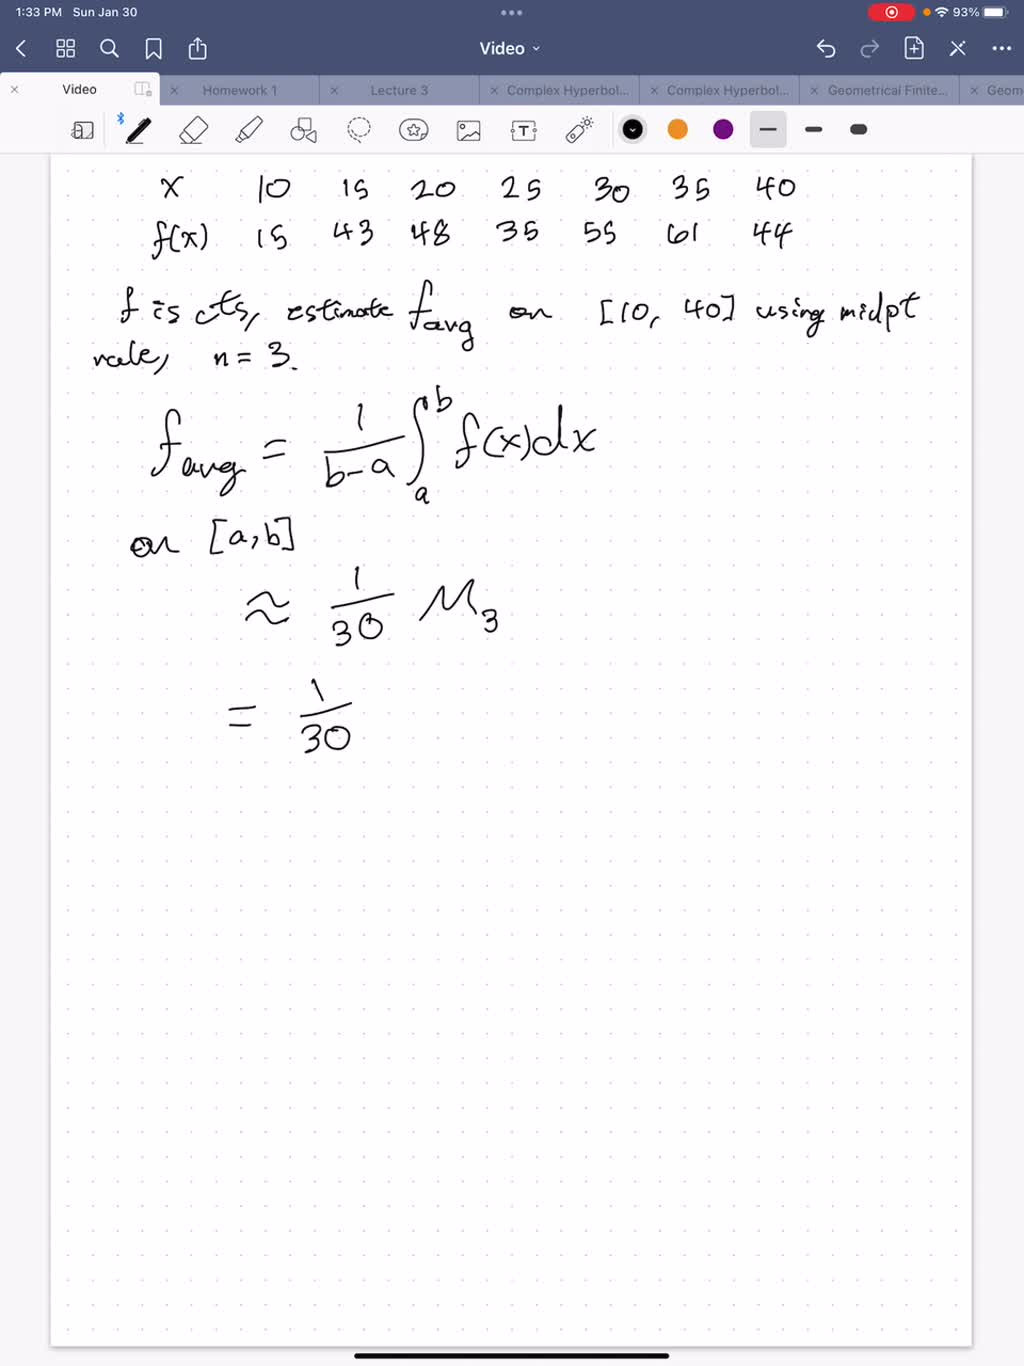 1:33 PM Sun Jan 30 93%
Video
Video Homework 1 Lecture 3 Complex Hyperbol... Complex Hyperbol... Geometrical Finite... Geom
x 10 15 20 25 30 35 40
f(x) 15 43 48 35 55 61 44
f is cts, estimate f_avg on [10, 40] using midpt
rule, n = 3.
f_avg = 1/(b-a) ∫_a^b f(x)dx
on [a,b]
≈ 1/30 M_3
= 1/30